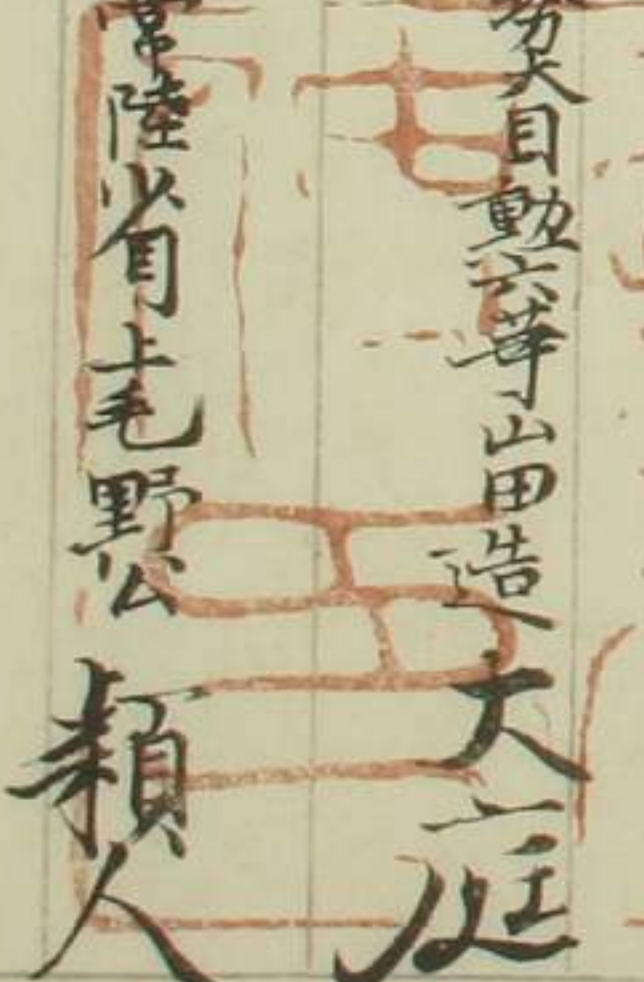 大目勲六等山田造大庭
常陸少目上毛野公頴人